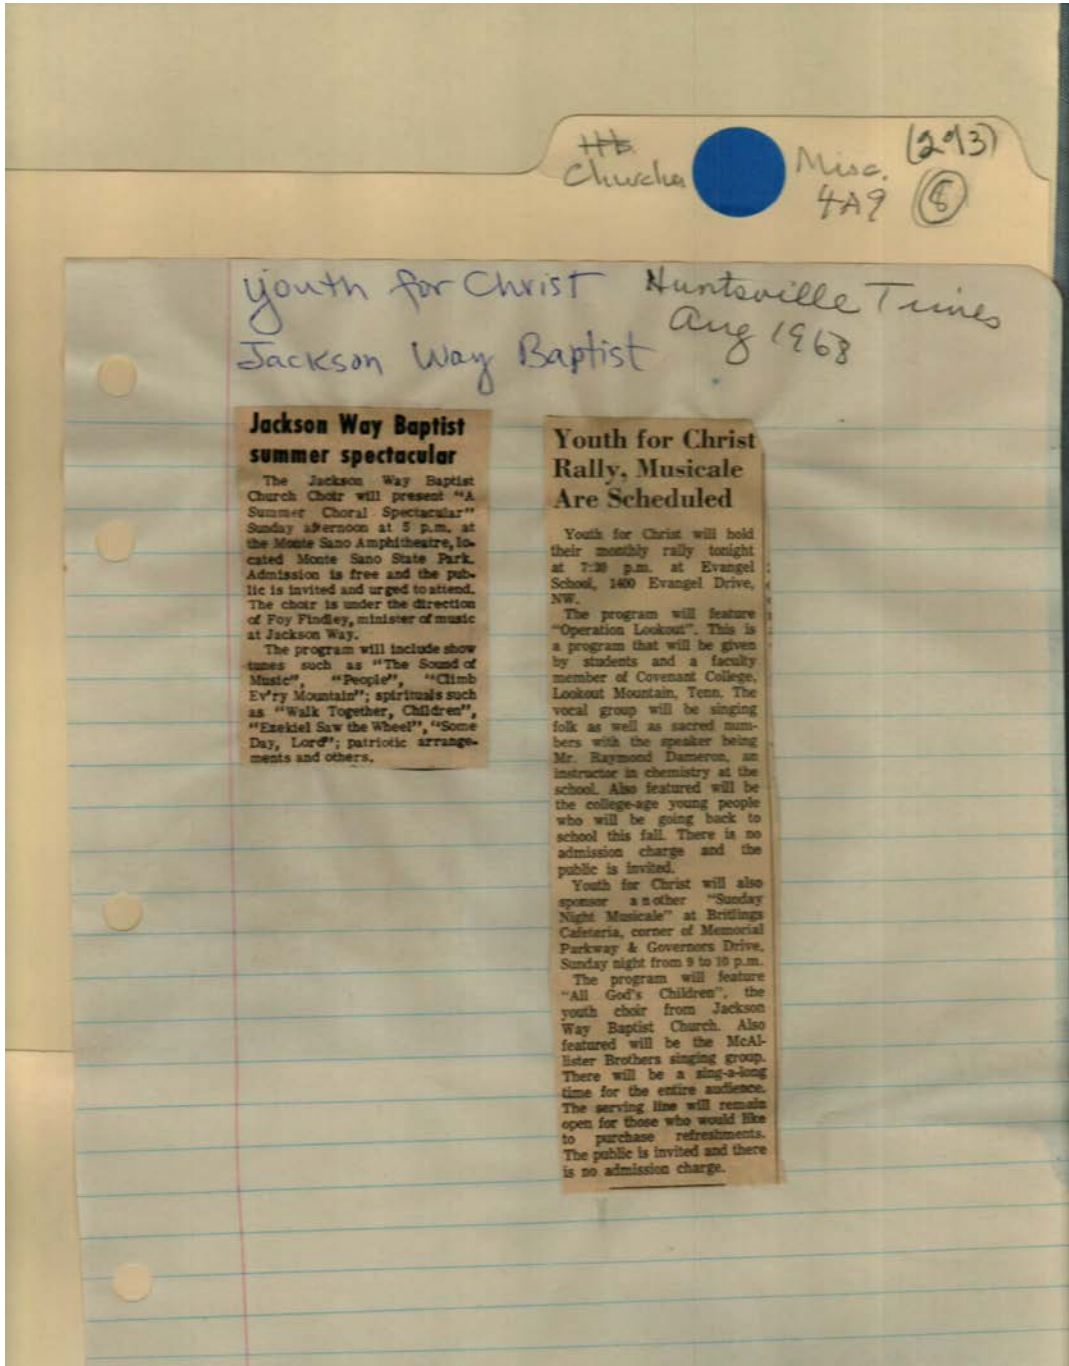 (2913)
Churches
Misc.
4A9
8
Youth for Christ
Huntsville Times
Aug 1968
Jackson Way Baptist
Jackson Way Baptist
summer spectacular
The Jackson Way Baptist
Church Choir will present "A
Summer Choral Spectacular"
Sunday afternoon at 5 p.m. at
the Monte Sano Amphitheatre, lo-
cated Monte Sano State Park.
Admission is free and the pub-
lic is invited and urged to attend.
The choir is under the direction
of Foy Findley, minister of music
at Jackson Way.
The program will include show
tunes such as "The Sound of
Music", "People", "Climb
Ev'ry Mountain"; spirituals such
as "Walk Together, Children",
"Ezekiel Saw the Wheel", "Some
Day, Lord"; patriotic arrange-
ments and others.
Youth for Christ
Rally, Musicale
Are Scheduled
Youth for Christ will hold
their monthly rally tonight
at 7:30 p.m. at Evangel
School, 1400 Evangel Drive,
NW.
The program will feature
"Operation Lookout". This is
a program that will be given
by students and a faculty
member of Covenant College,
Lookout Mountain, Tenn. The
vocal group will be singing
folk as well as sacred num-
bers with the speaker being
Mr. Raymond Dameron, an
instructor in chemistry at the
school. Also featured will be
the college-age young people
who will be going back to
school this fall. There is no
admission charge and the
public is invited.
Youth for Christ will also
sponsor another "Sunday
Night Musicale" at Britlings
Cafeteria, corner of Memorial
Parkway & Governors Drive,
Sunday night from 9 to 10 p.m.
The program will feature
"All God's Children", the
youth choir from Jackson
Way Baptist Church. Also
featured will be the McAl-
lister Brothers singing group.
There will be a sing-a-long
time for the entire audience.
The serving line will remain
open for those who would like
to purchase refreshments.
The public is invited and there
is no admission charge.